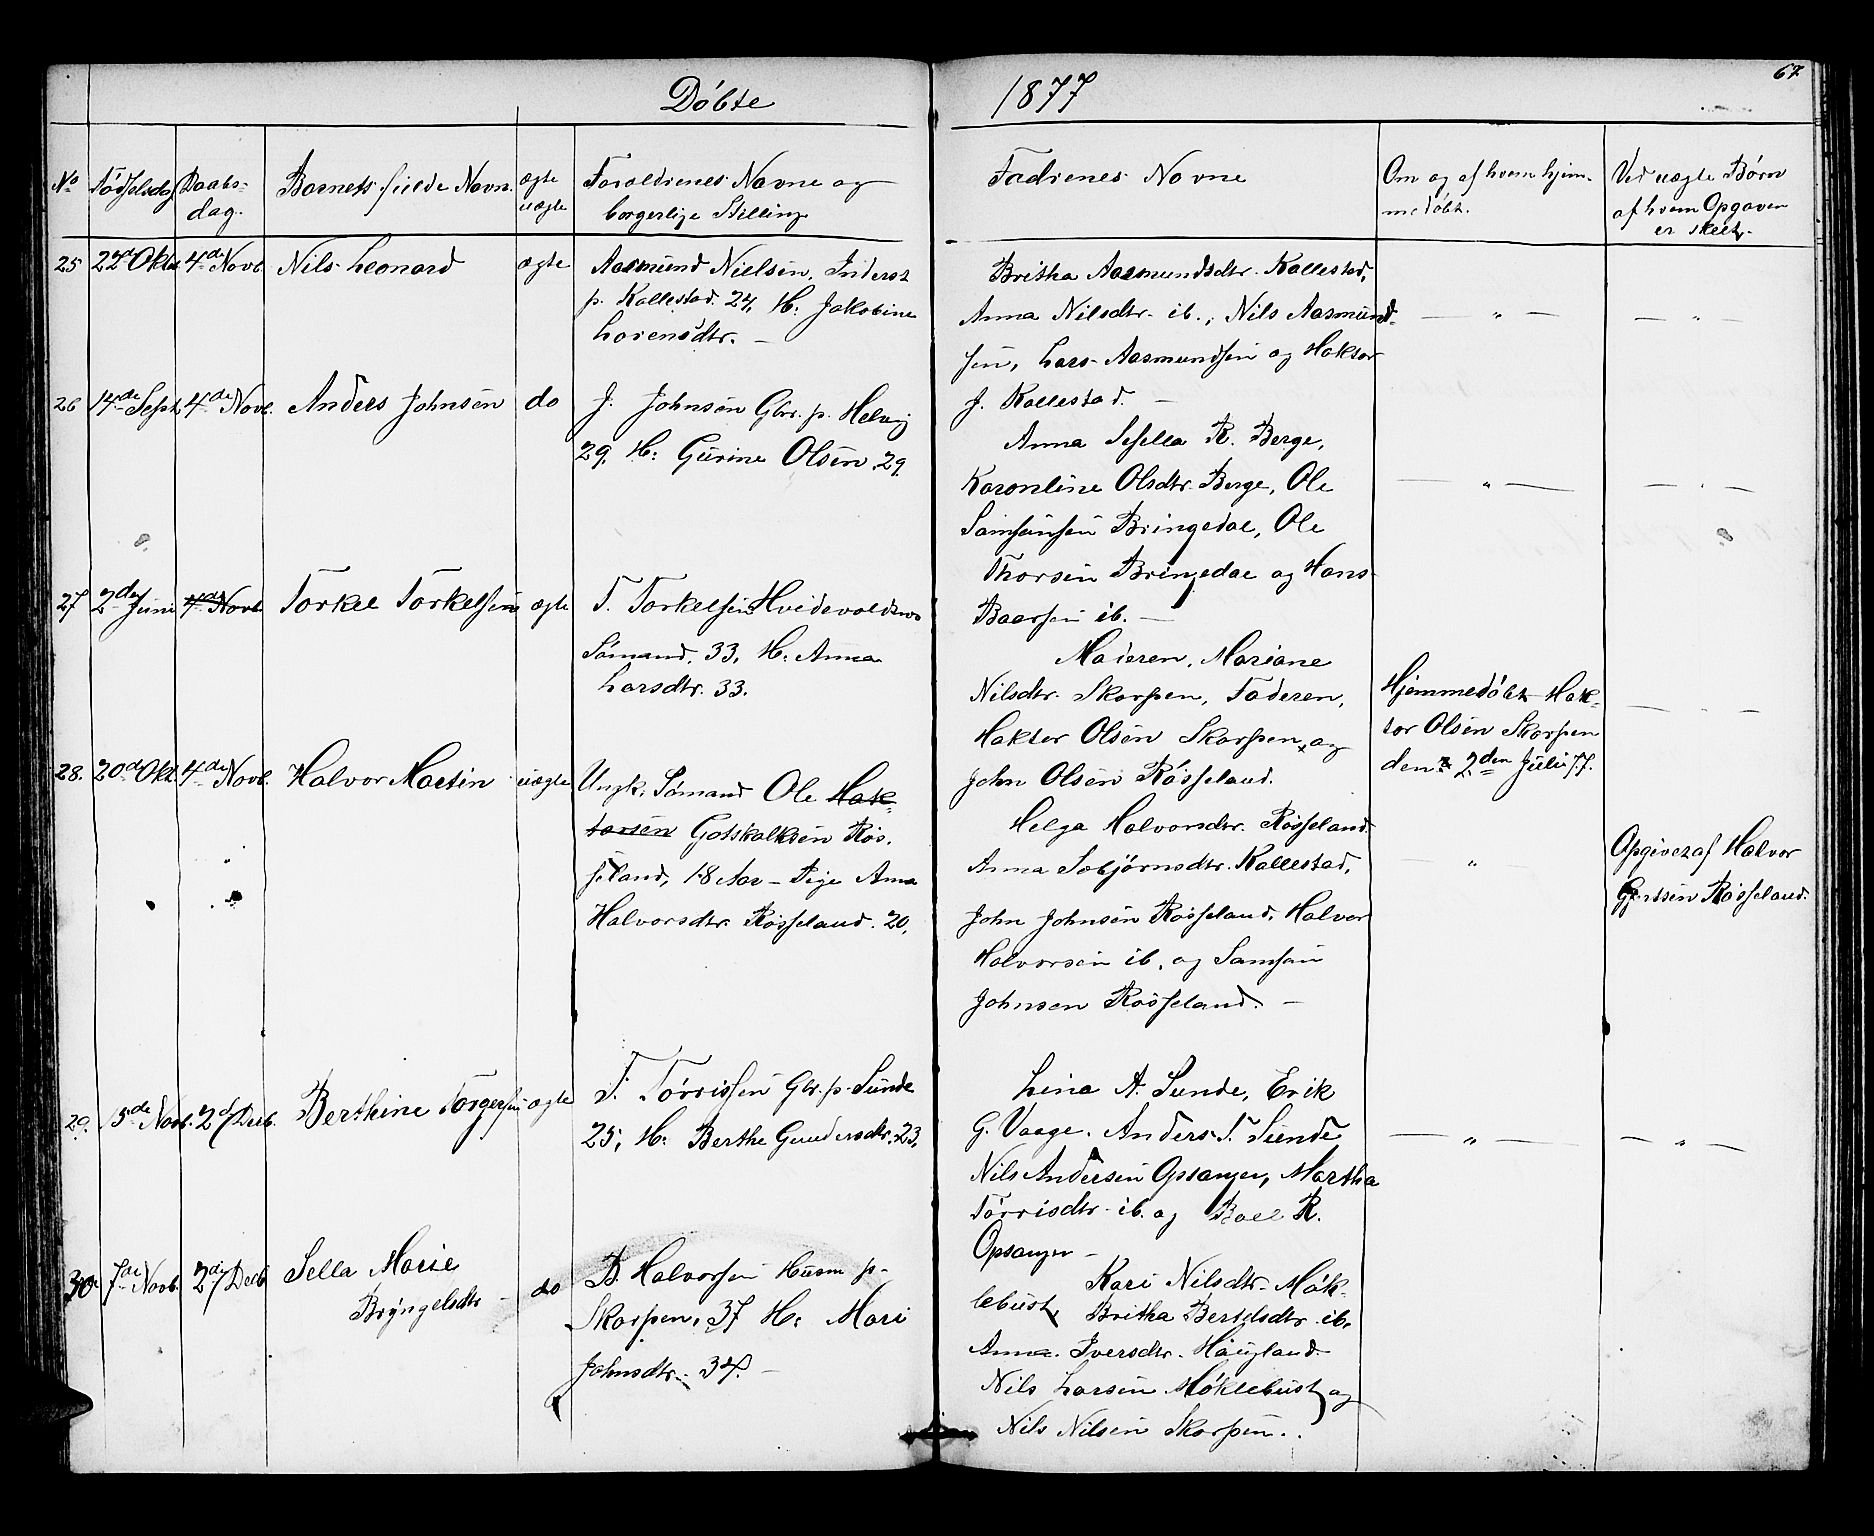 67
Döbte 1877
No
Födselsdag
Daabs-
dag.
Barnets fulde Navn.
ægte
uægte
Foraldrenes Navne og
borgerlige Stilling
Fadrenes Navne
Om og af hvem hjem-
medöbt.
Ved uægte Børn
af hvem Opgaven
er skeet.
25 22de Oktb 4de Novb. Nils Leonard ægte
Aasmund Nielsen, Inderst
p. Kallestad. 27, H: Jakobine
Lorensdtr. —
Britha Aasmundsdtr. Kallestad,
Anna Nilsdtr. ib., Nils Aasmund-
sen, Lars Aasmundsen og Haktor
J. Kallestad. —
— " —
— " —
26 14de Sept. 4de Novb. Anders Johnsen do
J. Johnsen Gbr. p. Helvig
29. H: Gurine Olsen. 29.
Anna Sesella R. Berge,
Karonline Olsdtr. Berge, Ole
Samsonsen Bringedal, Ole
Thorsen Bringedal og Hans
Baarsen ib. —
— " —
— " —
27 2de Juni 4de Novb Torkel Torkelsen ægte
T. Torkelsen Hvidevoldsnes
Sömand. 33, H: Anna
Larsdtr. 33.
Moderen, Mariane
Nilsdtr. Skorpen, Faderen,
Haktor Olsen Skorpen, og
John Olsen Rösseland.
Hjemmedöbt Hak-
tor Olsen Skorpen
den 2den Juli 77.
— " —
28. 20de Okt. 4de Novb. Halvor Martin uægte
Ungk. Sömand Ole Hak-
torsen Gotskalksen Rös-
seland, 18 Aar — Pige Anna
Halvorsdtr. Rösseland. 20.
Helga Halvorsdtr. Rösseland
Anna Sebjörnsdtr. Kallestad,
John Johnsen Rösseland, Halvor
Halvorsen ib. og Samson
Johnsen Rösseland. —
— " —
Opgivet af Halvor
Gjertsen Rösseland.
29. 15de Novb. 27de Decb. Berthine Torgersen ægte
T. Törrissen Gbr. p. Sunde
25, H: Berthe Gundersdtr. 23,
Lina A. Sunde, Erik
G. Vaage. Anders T. Sunde
Nils Andersen Opsanger, Martha
Törrisdtr. ib. og Boel R.
Opsanger —
— " —
— " —
30 7de Novb. 27de Decb Sella Marie
Bryngelsdtr — do
B. Halvorsen Husm p.
Skorpen, 37 H: Mari
Johnsdtr. 34. —
Kari Nilsdtr. Mök-
lebust, Britha Bertelsdtr. ib.
Anna Iversdtr. Haugland
Nils Larsen Möklebust og
Nils Nilsen Skorpen.